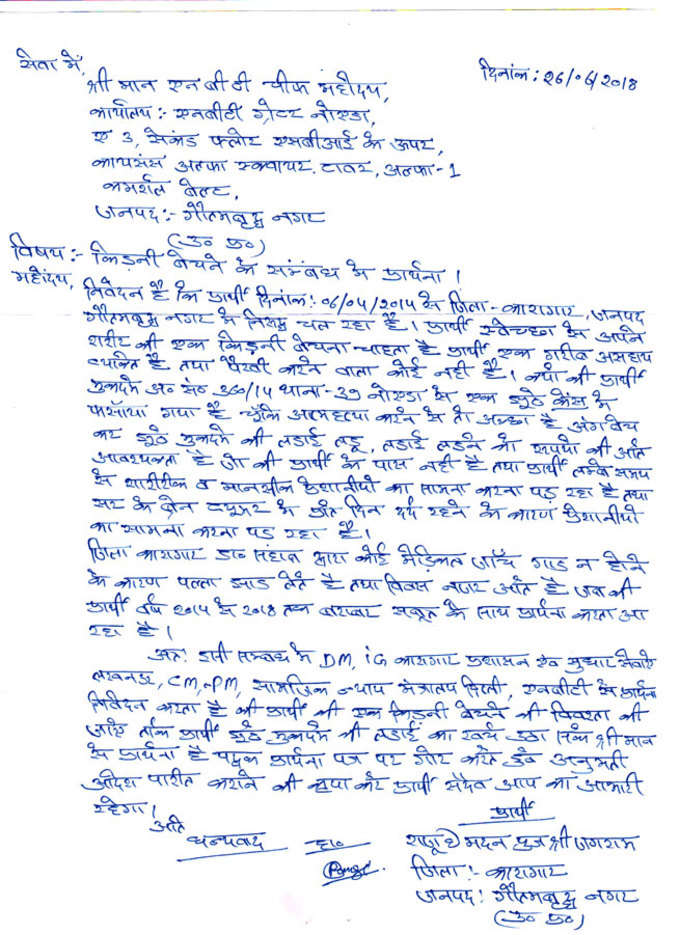 सेवा में,
दिनांक : 26/06/2018
श्री मान एनबीटी चीफ महोदय,
कार्यालय :- एनबीटी ग्रेटर नोएडा,
ए 3, सेकंड फ्लोर एसबीआई के ऊपर,
अल्फा स्क्वायर टावर, अल्फा-1
कमर्शल बेल्ट,
जनपद :- गौतमबुद्ध नगर
(उ० प्र०)
विषय :- किडनी बेचने के संम्बंध में प्रार्थना ।
महोदय,
निवेदन है कि प्रार्थी दिनांक: 06/04/2014 से जिला-कारागार, जनपद
गौतमबुद्ध नगर में निरुद्ध चल रहा है। प्रार्थी स्वेच्छा से अपने
शरीर की एक किडनी बेचना चाहता है प्रार्थी एक गरीब असहाय
व्यक्ति है तथा पैरवी करने वाला कोई नहीं है। प्रार्थी
मुकदमे अ० सं० 360/14 थाना-39 नोएडा के एक झूठे केस में
फसाँया गया है चूँकि आत्महत्या करने से तो अच्छा है अंग बेच
कर झूठे मुकदमे की लडाई लडू, लडाई लडने को रूपयो की अति
आवश्यकता है जो की प्रार्थी के पास नहीं है तथा प्रार्थी लम्बे समय
से शारीरिक व मानसीक परेशानीयों का सामना करना पड रहा है तथा
सर के ट्यूमर के प्रति दिन दर्द रहने के कारण परेशानीयों
का सामना करना पड रहा है।
जिला कारागार द्वारा कोई मेडिकल जाँच गार्ड न होने
के कारण पल्ला झाड लेते है तथा विवस नजर आते है जब की
प्रार्थी वर्ष 2014 से 2018 तक बराबर सबूत के साथ प्रार्थना करता आ
रहा है।
अतः इसी सम्बंध में DM, iG कारागार प्रशासन एवं सुधार सेवाऐं
लखनऊ, CM, PM, सामाजिक न्याय मंत्रालय दिल्ली, एनबीटी से प्रार्थना
निवेदन करता है की प्रार्थी की एक किडनी बेचने की
जाऐ ताकि प्रार्थी झूठे मुकदमे की लडाई का खर्च उठा सके श्री मान
से प्रार्थना है प्रार्थना पत्र पर गौर करते हुऐ अनुमती
आदेश पारीत कराने की कृपा करे प्रार्थी सदैव आप का आभारी
रहेगा।
अति
धन्यवाद
ह०
प्रार्थी
राजू @ मदन पुत्र श्री जगराम
जिला :- कारागार
जनपद : गौतमबुद्ध नगर
(उ० प्र०)